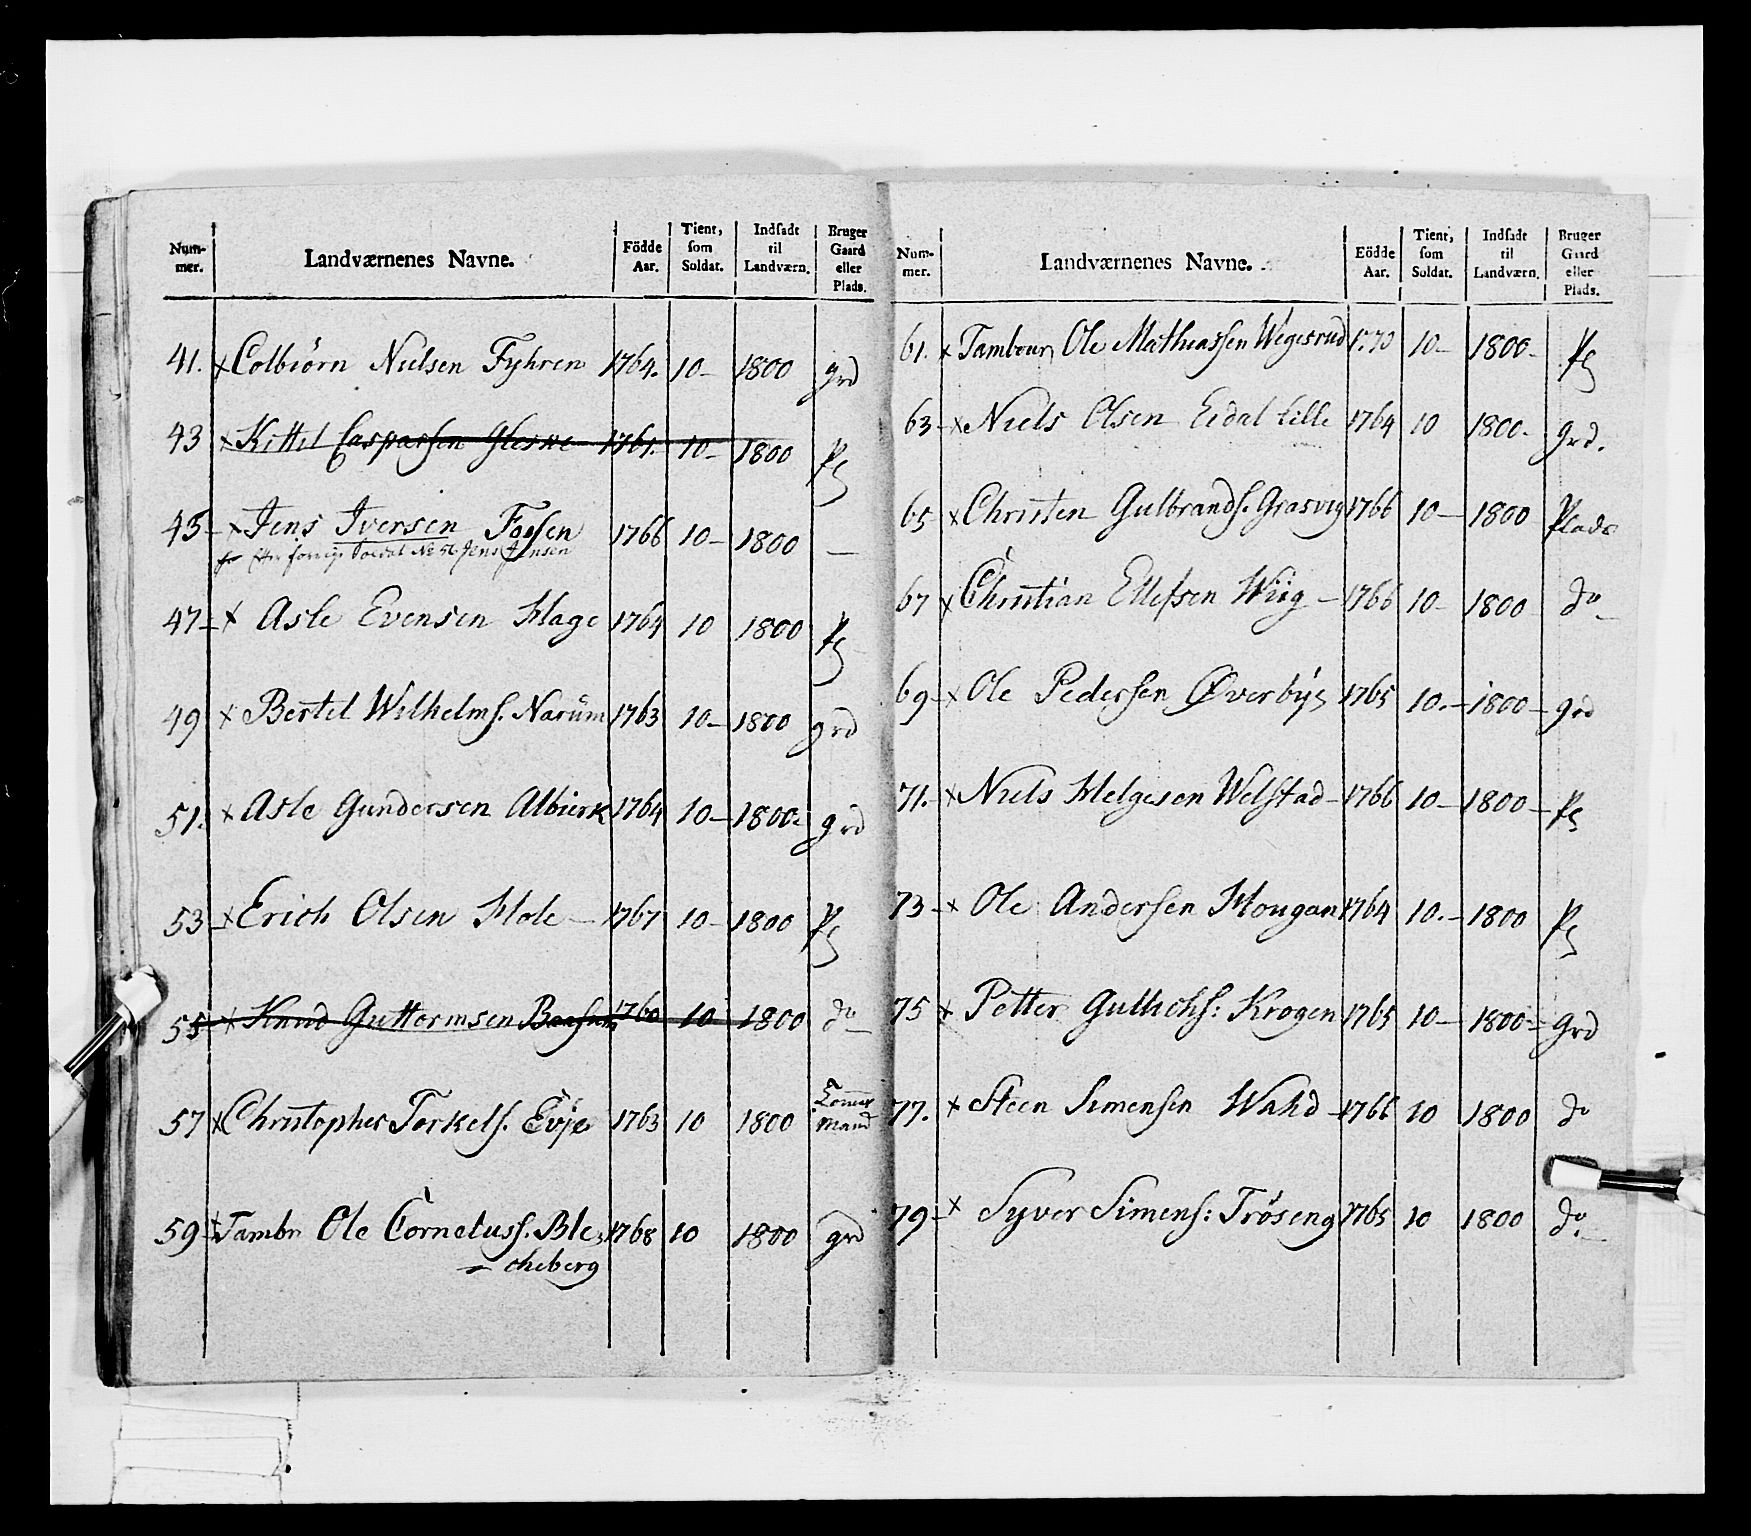 Num- mer. Landværnenes Navne. Födde Aar. Tient, som Soldat. Indsadt til Landværn. Bruger Gaard eller Plads.
41. x Colbiörn Nielsen Fyhren 1764. 10- 1800 grd
43 x Kittil Caspersen Gleske 1761. 10- 1800 Pl
45- x Jens Iversen Fossen 1766 10- 1800 -
forrige Soldat No 56 Jens Jensen
47- x Asle Evensen Hage 1764 10 1800 Pl
49 x Bertel Wilhelms. Narüm 1763 10- 1800 grd
51. x Asle Gundersen Albierk 1764 10- 1800- grd
53- x Erich Olsen Hole - 1767 10- 1800 Pl
55 x Knud Guttormsen 1760 10 1800 do
57 x Christopher Torkels. Evje 1763 10 1800 Tömmermand
59 x Tambr Ole Cornelius s. Ble- 1768 10 1800 grd
- cheberg
Num- mer. Landværnenes Navne. Födde Aar. Tient, som Soldat. Indsadt til Landværn. Bruger Gaard eller Plads.
61. x Tambour Ole Mathiassen Wegesrud 1770 10- 1800- Pl
63- x Niels Olsen Eidal lille 1764 10 1800- Grd.
65 x Christen Gulbrands. Grasvig 1766 10- 1800 Plads
67 x Christian Ellefsen Wiig - 1766 10- 1800 do -
69- x Ole Pedersen Øverbye 1765 10.- 1800- grd
71.- x Niels Helgesen Welstad - 1766 10- 1800- Pl
73- x Ole Andersen Hougan 1764 10.- 1800 Pl
75 x Petter Gullichs: Krogen 1765 10- 1800- Grd
77. x Steen Simensen Wahd - 1766 10 1800 do
79- x Syver Simens: Tröseng 1765 10 1800 do -